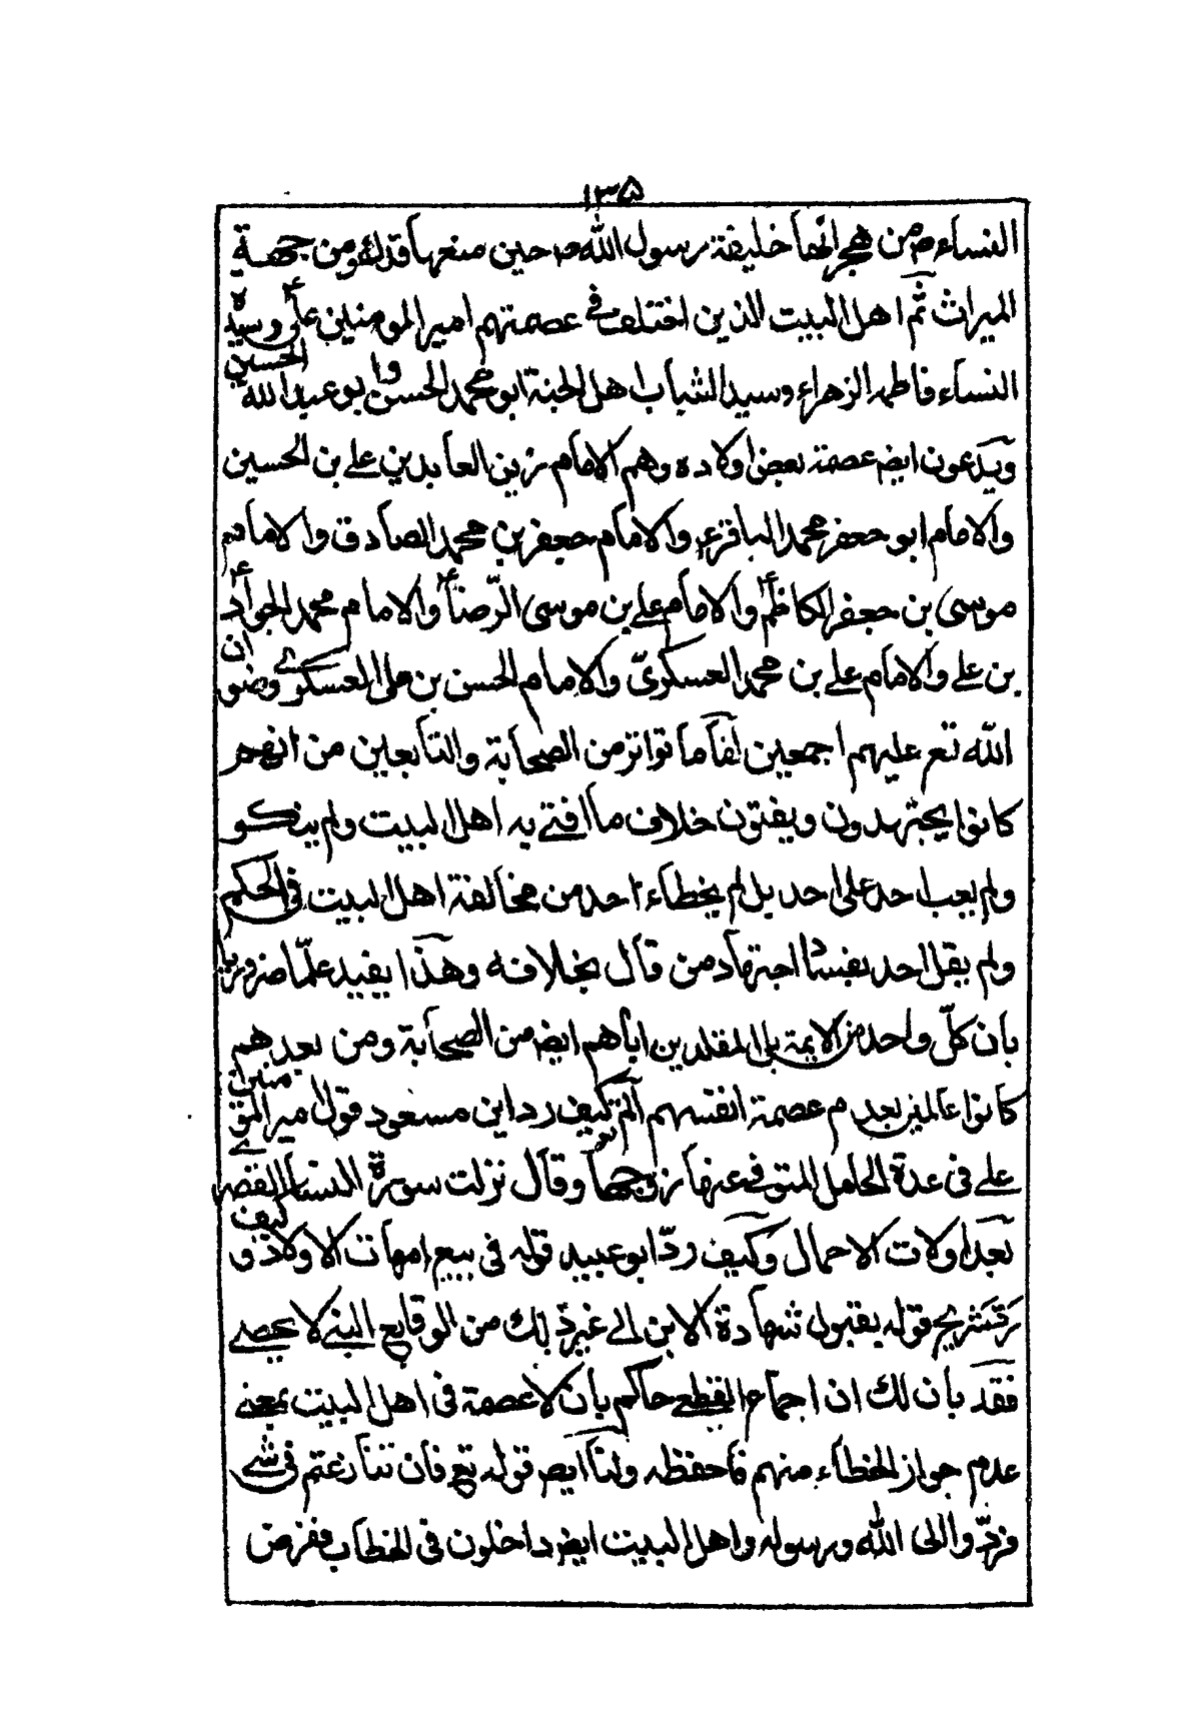 ١٣٥
النساء ص من هجرانها خليفة رسول الله ص حين منعها فدك من جهة
الميراث ثم اهل البيت الذين اختلف في عصمتهم امير المومنين علي ع وسيدة
النساء فاطمه الزهراء وسيدا الشباب اهل الجنة ابو محمد الحسن وابو عبد الله الحسين
ويدعون ايض عصمة بعض اولاده وهم الامام زين العابدين علي بن الحسين
والامام ابو جعفر محمد الباقر ع والامام جعفر بن محمد الصادق والامام
موسى بن جعفر الكاظم ع والامام علي بن موسى الرضا ع والامام محمد الجواد ع
بن علي والامام علي بن محمد العسكري والامام الحسن بن علي العسكري رضوان
الله تع عليهم اجمعين لنا ما تواتر من الصحابة والتابعين من انهم
كانوا يجتهدون ويفتون خلاف ما افتى به اهل البيت ولم ينكر
ولم يعب احد على احد بل لم يخطاء احد من مخالفة اهل البيت في الحكم
ولم يقل احد بفساد اجتهاد من قال بخلافه وهذا يفيد علما ضروريا
بان كل واحد من الايمة بل المقلدين اياهم ايض من الصحابة ومن بعدهم
كانوا عالمين بعدم عصمة انفسهم الم تر كيف رد ابن مسعود قول امير المؤمنين
علي في عدة الحامل المتوفى عنها زوجها وقال نزلت سورة النساء القصرى
بعد اولات الاحمال وكيف رد ابو عبيد قوله في بيع امهات الاولاد وكيف
رد شريح قوله بقبول شهادة الابن الى غير ذلك من الوقايع التي لا يحصى
فقد بان لك ان اجماع القطعي حاكم بان لا عصمة في اهل البيت بمعنى
عدم جواز الخطاء منهم فاحفظه ولنا ايض قوله تع فان تنازعتم في شي
فردوا الى الله ورسوله واهل البيت ايض داخلون في الخطاب ففرض